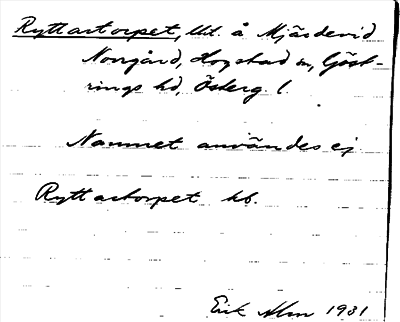 Ryttartorpet, utl. å Mjäsdevid
Norrgård, Hogstad sn, Göst-
rings hd, Österg. l.
Namnet användes ej
Ryttartorpet kb.
Erik Alm 1931